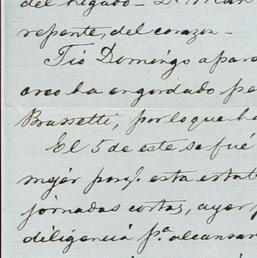 del hígado_ D. Man
repente, del corazon_
Tio Domingo apare
creo ha engordado pe
Brussetti, por lo que ha
El 5 de este se fué
mujer porq.e esta estab
jornadas cortas, ayer p
diligencia p.a alcansar